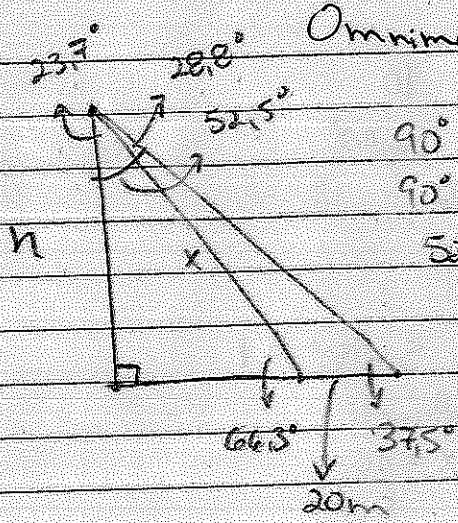 Omnim
23,7° 28,8°
52,5°
90°
90°
h
x
66,3° 37,5°
20m